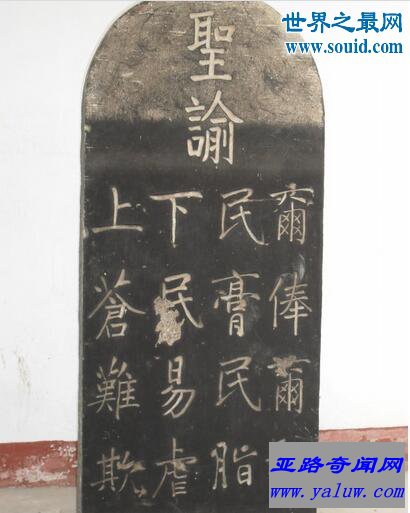 世界之最网
www.souid.com
聖諭
爾俸爾
民膏民脂
下民易虐
上蒼難欺
亚路奇闻网
www.yaluw.com